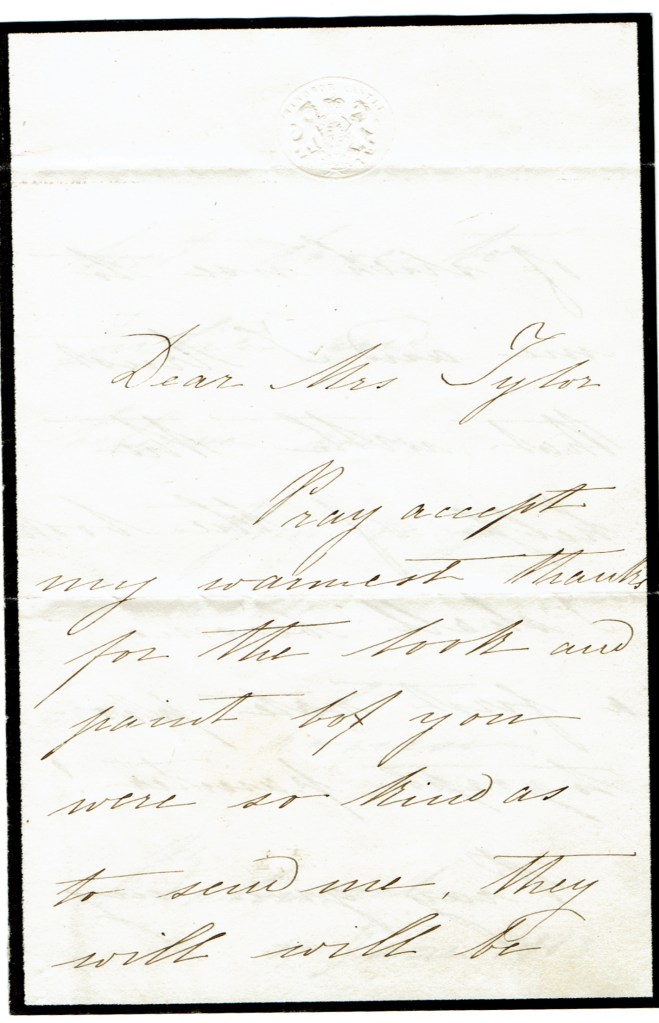 Dear Mrs Tylor
Pray accept
my warmest thanks
for the book and
paint box you
were so kind as
to send me, they
will will be